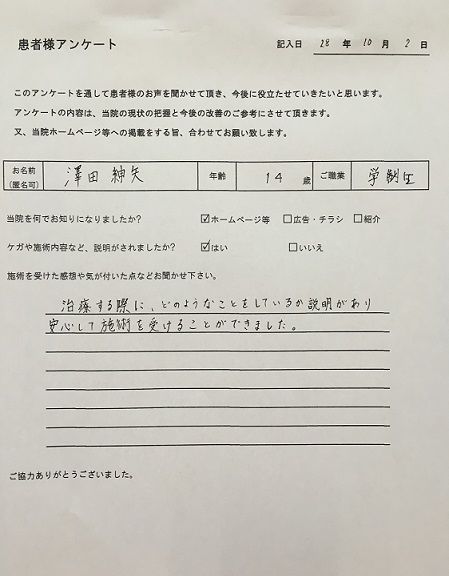 患者様アンケート 記入日 28 年 10 月 2 日
このアンケートを通して患者様のお声を聞かせて頂き、今後に役立たせていきたいと思います。
アンケートの内容は、当院の現状の把握と今後の改善のご参考にさせて頂きます。
又、当院ホームページ等への掲載をする旨、合わせてお願い致します。
お名前 (匿名可) 澤田 紳矢 年齢 14 歳 ご職業 学生
当院を何でお知りになりましたか? ☑ホームページ等 □広告・チラシ □紹介
ケガや施術内容など、説明がされましたか? ☑はい □いいえ
施術を受けた感想や気が付いた点などお聞かせ下さい。
治療する際に、どのようなことをしているか説明があり
安心して施術を受けることができました。
ご協力ありがとうございました。